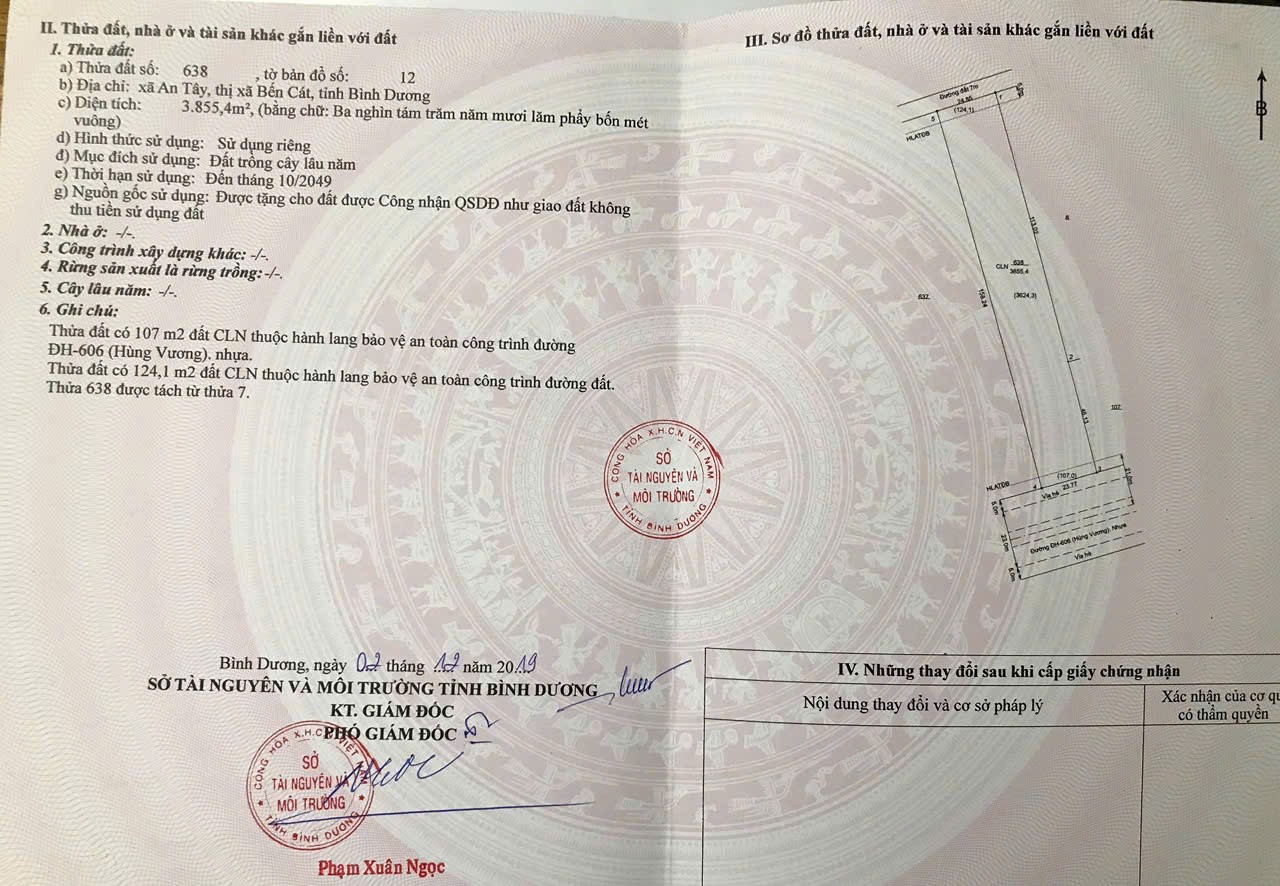 II. Thửa đất, nhà ở và tài sản khác gắn liền với đất
1. Thửa đất:
a) Thửa đất số: 638 , tờ bản đồ số: 12
b) Địa chỉ: xã An Tây, thị xã Bến Cát, tỉnh Bình Dương
c) Diện tích: 3.855,4m², (bằng chữ: Ba nghìn tám trăm năm mươi lăm phẩy bốn mét
vuông)
d) Hình thức sử dụng: Sử dụng riêng
đ) Mục đích sử dụng: Đất trồng cây lâu năm
e) Thời hạn sử dụng: Đến tháng 10/2049
g) Nguồn gốc sử dụng: Được tặng cho đất được Công nhận QSDĐ như giao đất không
thu tiền sử dụng đất
2. Nhà ở: -/-.
3. Công trình xây dựng khác: -/-.
4. Rừng sản xuất là rừng trồng:-/-.
5. Cây lâu năm: -/-.
6. Ghi chú:
Thửa đất có 107 m2 đất CLN thuộc hành lang bảo vệ an toàn công trình đường
ĐH-606 (Hùng Vương). nhựa.
Thửa đất có 124,1 m2 đất CLN thuộc hành lang bảo vệ an toàn công trình đường đất.
Thửa 638 được tách từ thửa 7.
CỘNG HÒA X.H.C.N VIỆT NAM
SỞ
TÀI NGUYÊN VÀ
MÔI TRƯỜNG
TỈNH BÌNH DƯƠNG
Bình Dương, ngày 02 tháng 12 năm 2019
SỞ TÀI NGUYÊN VÀ MÔI TRƯỜNG TỈNH BÌNH DƯƠNG
KT. GIÁM ĐỐC
PHÓ GIÁM ĐỐC
CỘNG HÒA X.H.C.N VIỆT NAM
SỞ
TÀI NGUYÊN VÀ
MÔI TRƯỜNG
TỈNH BÌNH DƯƠNG
Phạm Xuân Ngọc
III. Sơ đồ thửa đất, nhà ở và tài sản khác gắn liền với đất
B
Đường đất 7m
24.85
(124.1)
5
1
HLATĐB
113.02
8
CLN 638
3855.4
(3624.3)
637
159.24
2
107
46.13
HLATĐB
(107.0)
3
4
23.77
21.0m
Vỉa hè
5.0m
23.0m
Đường ĐH-606 (Hùng Vương). Nhựa
Vỉa hè
5.0m
IV. Những thay đổi sau khi cấp giấy chứng nhận
Nội dung thay đổi và cơ sở pháp lý
Xác nhận của cơ qu
có thẩm quyền